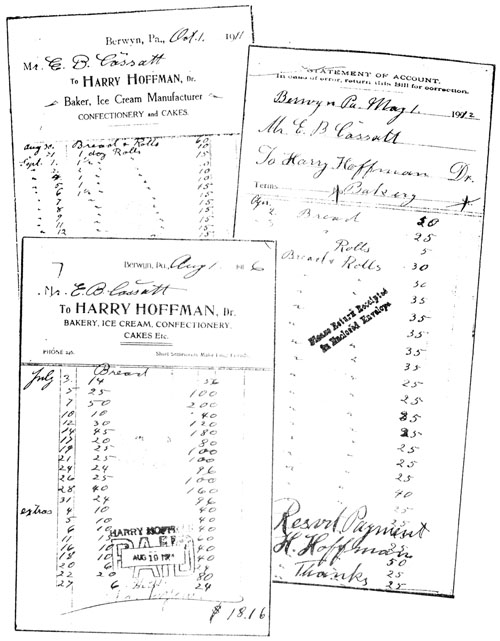 Berwyn, Pa., Oct. 1. 1911
Mr. E. B. Cassatt
To HARRY HOFFMAN, Dr.
Baker, Ice Cream Manufacturer
CONFECTIONERY and CAKES.
Aug 30. Bread & Rolls 60
31 1 doz Rolls 15
Sept. 1. 15
STATEMENT OF ACCOUNT.
In case of error, return this Bill for correction.
Berwyn Pa. May 1. 1912
Mr. E B Cassatt
To Harry Hoffman Dr.
Terms Baking
Apr. 2. Bread 20
25
Rolls 5
Bread & Rolls 30
30
35
35
35
35
35
Please Return Receipted
In Enclosed Envelope
25
25
25
25
25
25
25
40
25
Recvd Payment
H. Hoffman
Thanks
50
25
25
7
Berwyn, Pa., Aug 1 6
Mr. E. B. Cassatt
To HARRY HOFFMAN, Dr.
BAKERY, ICE CREAM, CONFECTIONERY,
CAKES Etc.
PHONE
Short Settlements Make Long Friends
July 3 14 Bread 56
5 25 100
7 50 200
10 10 40
12 30 120
14 45 180
17 20 80
19 25 100
21 25 100
24 24 96
26 25 100
28 40 160
31 24 96
extras 4 10 40
5 10 40
6 10 40
11
16 10 40
18 10 40
20 20
22 20 80
27 6 24
HARRY HOFFMAN
PAID
AUG 10
$ 18.16